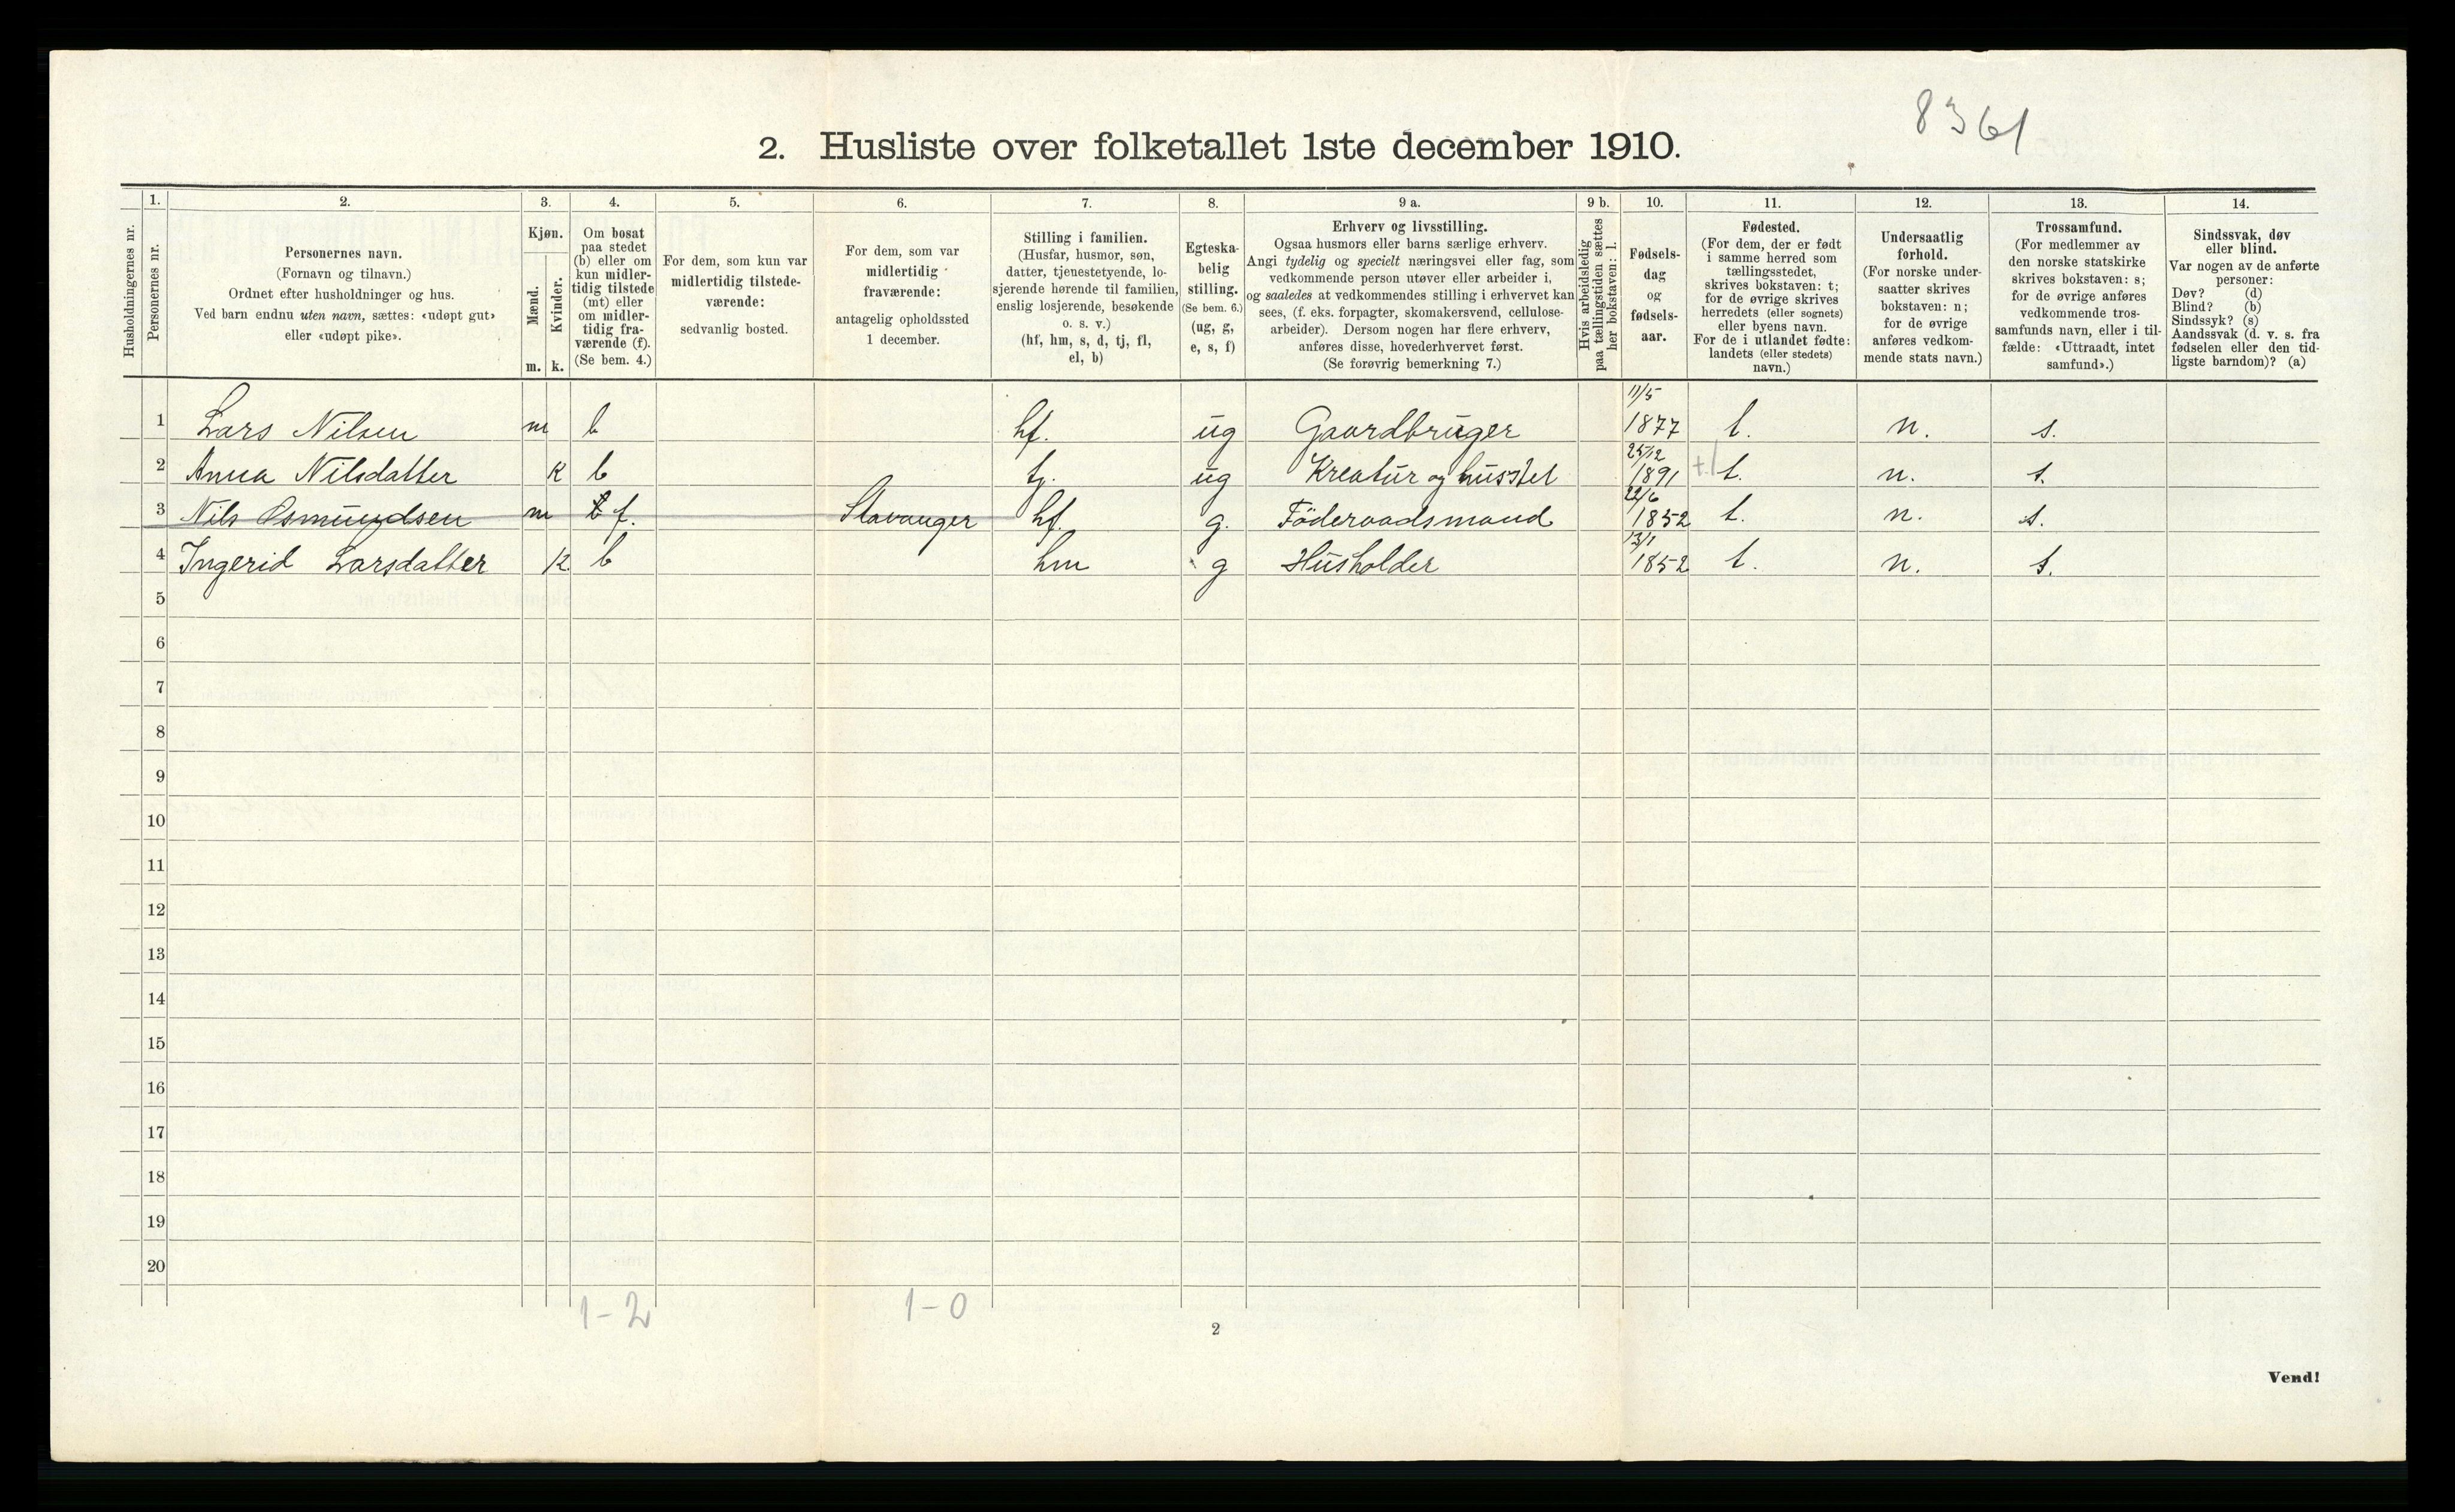 8361
2. Husliste over folketallet 1ste december 1910.
Husholdningernes nr.
1. Personernes nr.
2. Personernes navn. (Fornavn og tilnavn.) Ordnet efter husholdninger og hus. Ved barn endnu uten navn, sættes: «udøpt gut» eller «udøpt pike».
3. Kjøn. Mænd. m. Kvinder. k.
4. Om bosat paa stedet (b) eller om kun midlertidig tilstede (mt) eller om midlertidig fraværende (f). (Se bem. 4.)
5. For dem, som kun var midlertidig tilstedeværende: sedvanlig bosted.
6. For dem, som var midlertidig fraværende: antagelig opholdssted 1 december.
7. Stilling i familien. (Husfar, husmor, søn, datter, tjenestetyende, losjerende hørende til familien, enslig losjerende, besøkende o. s. v.) (hf, hm, s, d, tj, fl, el, b)
8. Egteskabelig stilling. (Se bem. 6.) (ug, g, e, s, f)
9 a. Erhverv og livsstilling. Ogsaa husmors eller barns særlige erhverv. Angi tydelig og specielt næringsvei eller fag, som vedkommende person utøver eller arbeider i, og saaledes at vedkommendes stilling i erhvervet kan sees, (f. eks. forpagter, skomakersvend, cellulosearbeider). Dersom nogen har flere erhverv, anføres disse, hovederhvervet først. (Se forøvrig bemerkning 7.)
9 b. Hvis arbeidsledig paa tællingstiden sættes her bokstaven: l.
10. Fødselsdag og fødselsaar.
11. Fødested. (For dem, der er født i samme herred som tællingsstedet, skrives bokstaven: t; for de øvrige skrives herredets (eller sognets) eller byens navn. For de i utlandet fødte: landets (eller stedets) navn.)
12. Undersaatlig forhold. (For norske undersaatter skrives bokstaven: n; for de øvrige anføres vedkommende stats navn.)
13. Trossamfund. (For medlemmer av den norske statskirke skrives bokstaven: s; for de øvrige anføres vedkommende trossamfunds navn, eller i tilfælde: «Uttraadt, intet samfund».)
14. Sindssvak, døv eller blind. Var nogen av de anførte personer: Døv? (d) Blind? (b) Sindssyk? (s) Aandssvak (d. v. s. fra fødselen eller den tidligste barndom)? (a)
1 Lars Nilsen m b hf. ug Gaardbruger 11/5 1877 t. n. s.
2 Anna Nilsdatter k b tj. ug Kreatur og husstel 25/12 1891 t. n. s.
3 Nils Osmundsen m f. Stavanger hf. g. Föderaadsmand 22/6 1852 t. n. s.
4 Ingerid Larsdatter k b hm g Husholder 13/1 1852 t. n. s.
5
6
7
8
9
10
11
12
13
14
15
16
17
18
19
20
1-2 1-0
2
Vend!